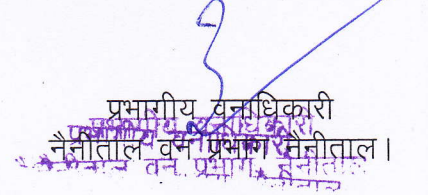 प्रभागीय वनाधिकारी
नैनीताल वन प्रभाग नैनीताल।